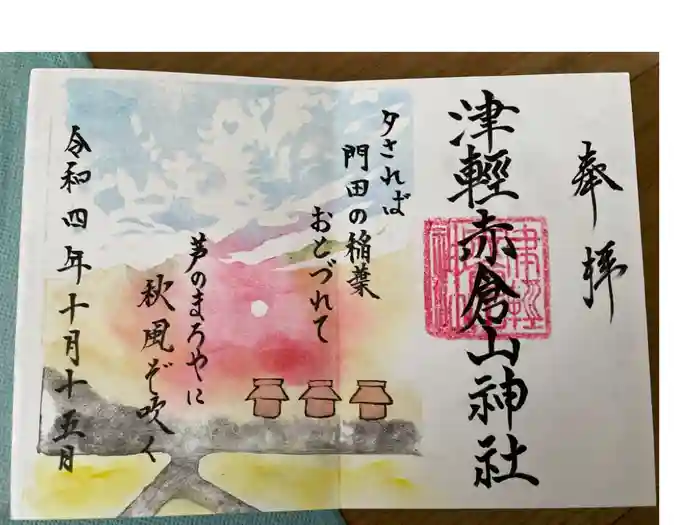 奉拝
津輕赤倉山神社
夕されば
門田の稲葉
おとづれて
芦のまろやに
秋風ぞ吹く
令和四年十月十五月